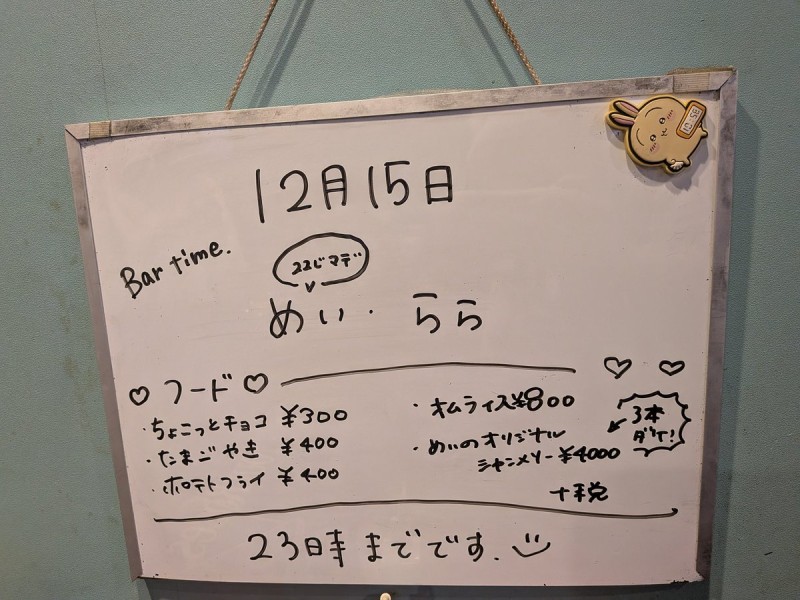 12月15日
Bar time.
22じマデ
めい・らら
♡フード♡
・ちょこっとチョコ ¥300
・たまごやき ¥400
・ポテトフライ ¥400
・オムライス¥800
・めいのオリジナル
シャンメリー¥4000
3本
ダケ!
+税
23時までです。